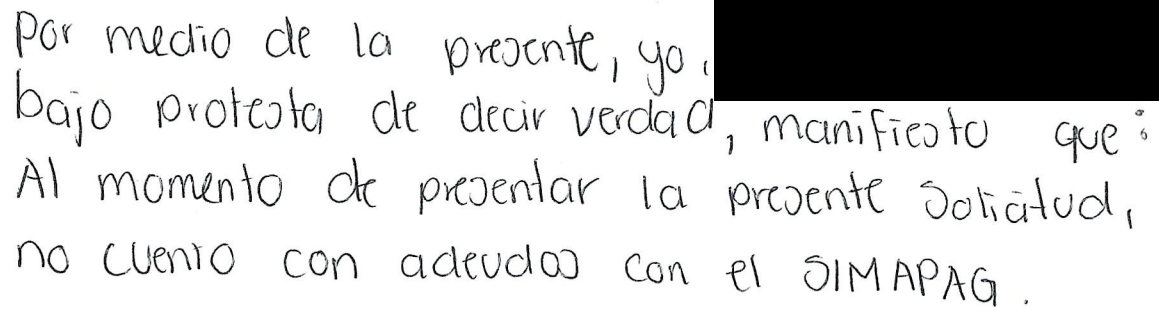 Por medio de la presente, yo,
bajo protesta de decir verdad, manifiesto que:
Al momento de presentar la presente solicitud,
no cuento con adeudos con el SIMAPAG.